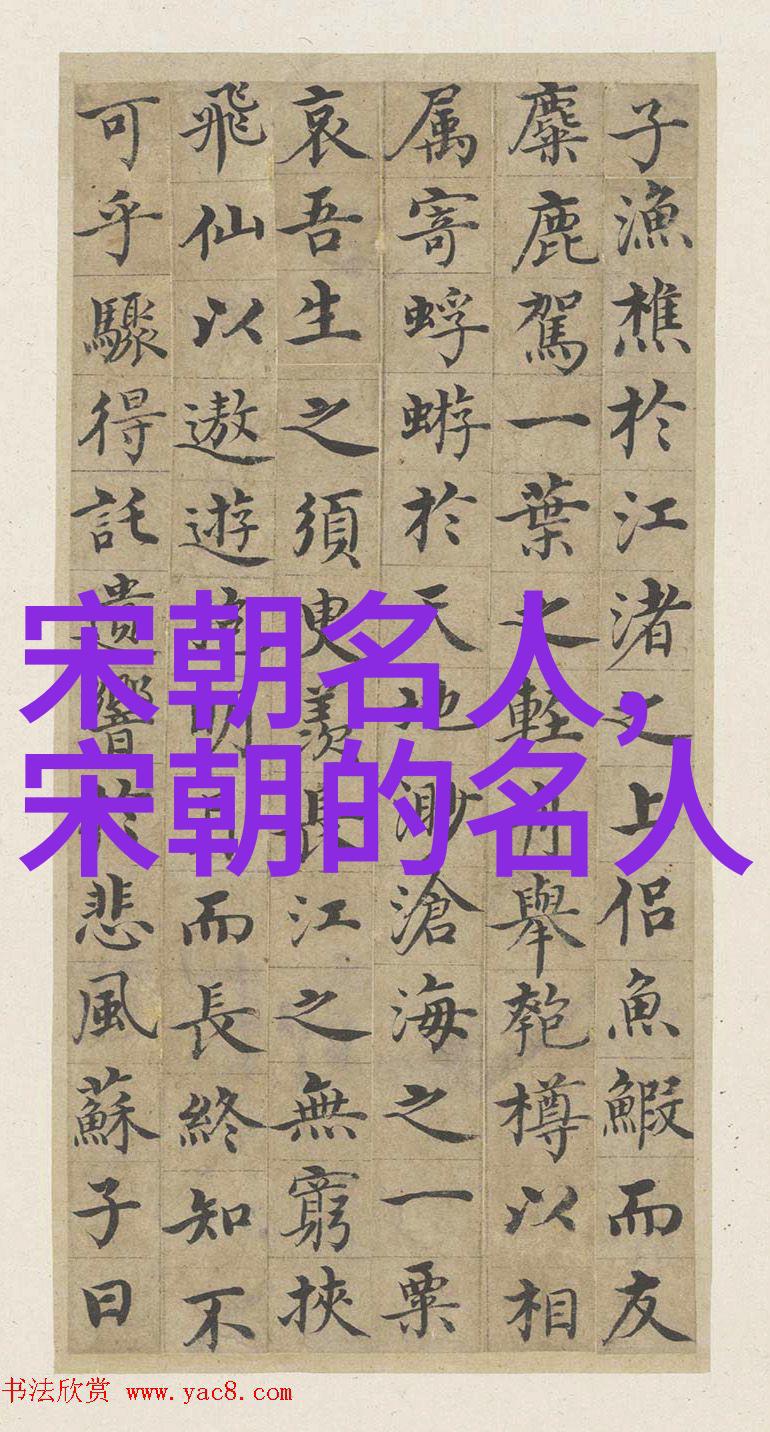 子漁樵於江渚之上侶魚鰕而友
麋鹿駕一葉之輕舟舉匏樽以相
属寄蜉蝣於天地渺滄海之一粟
哀吾生之須臾羨長江之無窮挾
飛仙以遨遊抱明月而長終知不
可乎驟得託遺響於悲風蘇子曰
宋朝名人,
宋朝的名人
书法欣赏 www.yac8.com